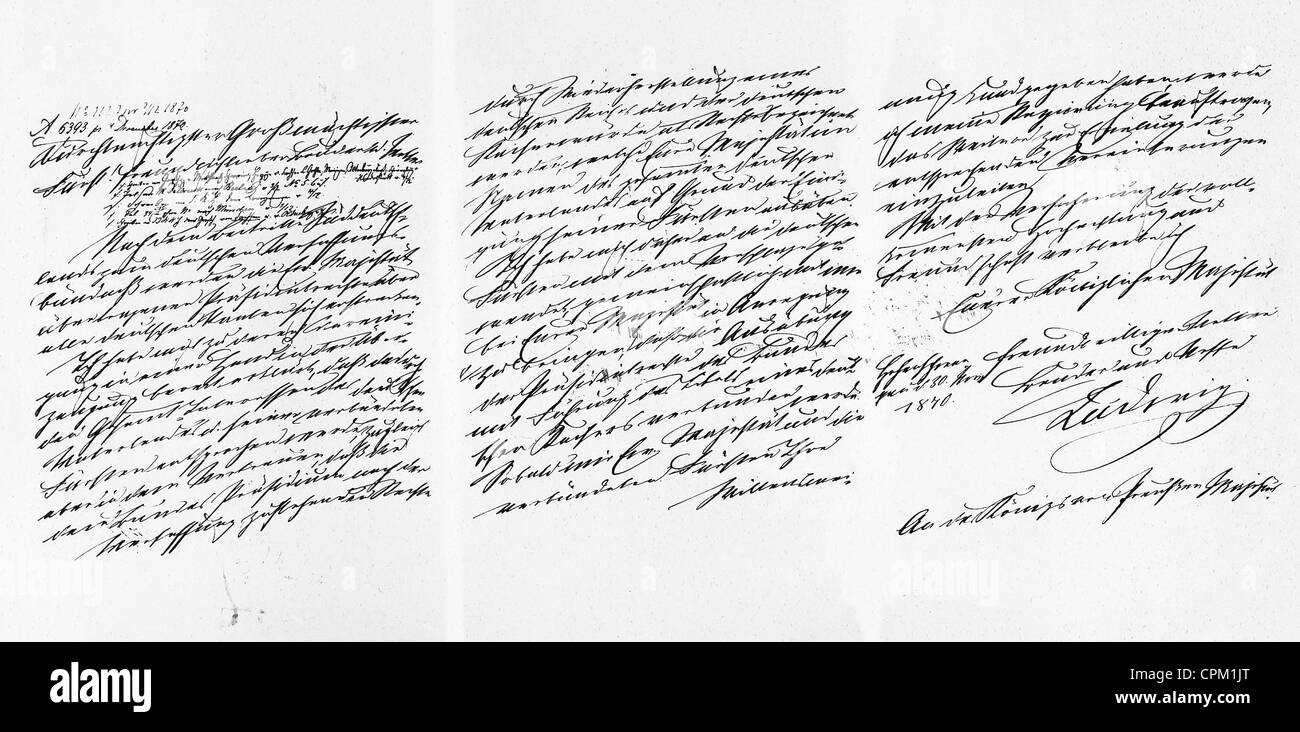 A 6393 pr Dezember 1870
Durchlauchtigster Großmächtigster
Fürst! Freundlich lieber Bruder und Vetter
Nach dem Beitritte Süddeutsch-
lands zum deutschen Verfassungs-
bündniß werden die Ew. Majestät
übertragenen Präsidialrechte über
alle deutschen Staaten sich erstrecken.
Ich habe mich zu deren Vereini-
gung in einer Hand in der Über-
zeugung bereit erklärt, daß dadurch
den Gesammt-Interessen des deutschen
Vaterlandes u. seiner verbündeten
Fürsten entsprochen werde, zugleich
aber in dem Vertrauen, daß die
dem Bundes-Präsidium nach der
Verfassung zustehenden Rechte
durch Wiederherstellung eines
deutschen Reiches und der deutschen
Kaiserwürde als Rechte bezeichnet
werden, welche Eure Majestät im
Namen des gesammten deutschen
Vaterlandes auf Grund der Eini-
gung seiner Fürsten ausüben.
Ich habe mich daher an die deutschen
Fürsten mit dem Vorschlage ge-
wendet, gemeinschaftlich mit mir
bei Eurer Majestät in Anregung
zu bringen, daß die Ausübung
der Präsidialrechte des Bundes
mit Führung des Titels eines deut-
schen Kaisers verbunden werde.
Sobald mir Ew. Majestät und die
verbündeten Fürsten Ihre
Willensmei-
nung kundgegeben haben, werde
ich meine Regierung beauftragen
das Weitere zur Erzielung der
entsprechenden Vereinbarungen
einzuleiten.
Mit der Versicherung der voll-
kommensten Hochachtung und
Freundschaft verbleibe ich
Euerer Königlichen Majestät
freundwilliger Vetter
Bruder und Neffe
Ludwig.
Hohenschwan-
gau d. 30. Nov.
1870.
An des Königs von Preußen Majestät
alamy
Image ID: CPM1JT
www.alamy.com